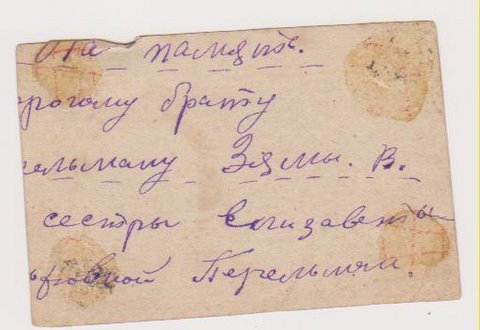 На память.
орогому брату
ельману Зямы. В.
сестры Елизаветы
ьфовной Перельман.